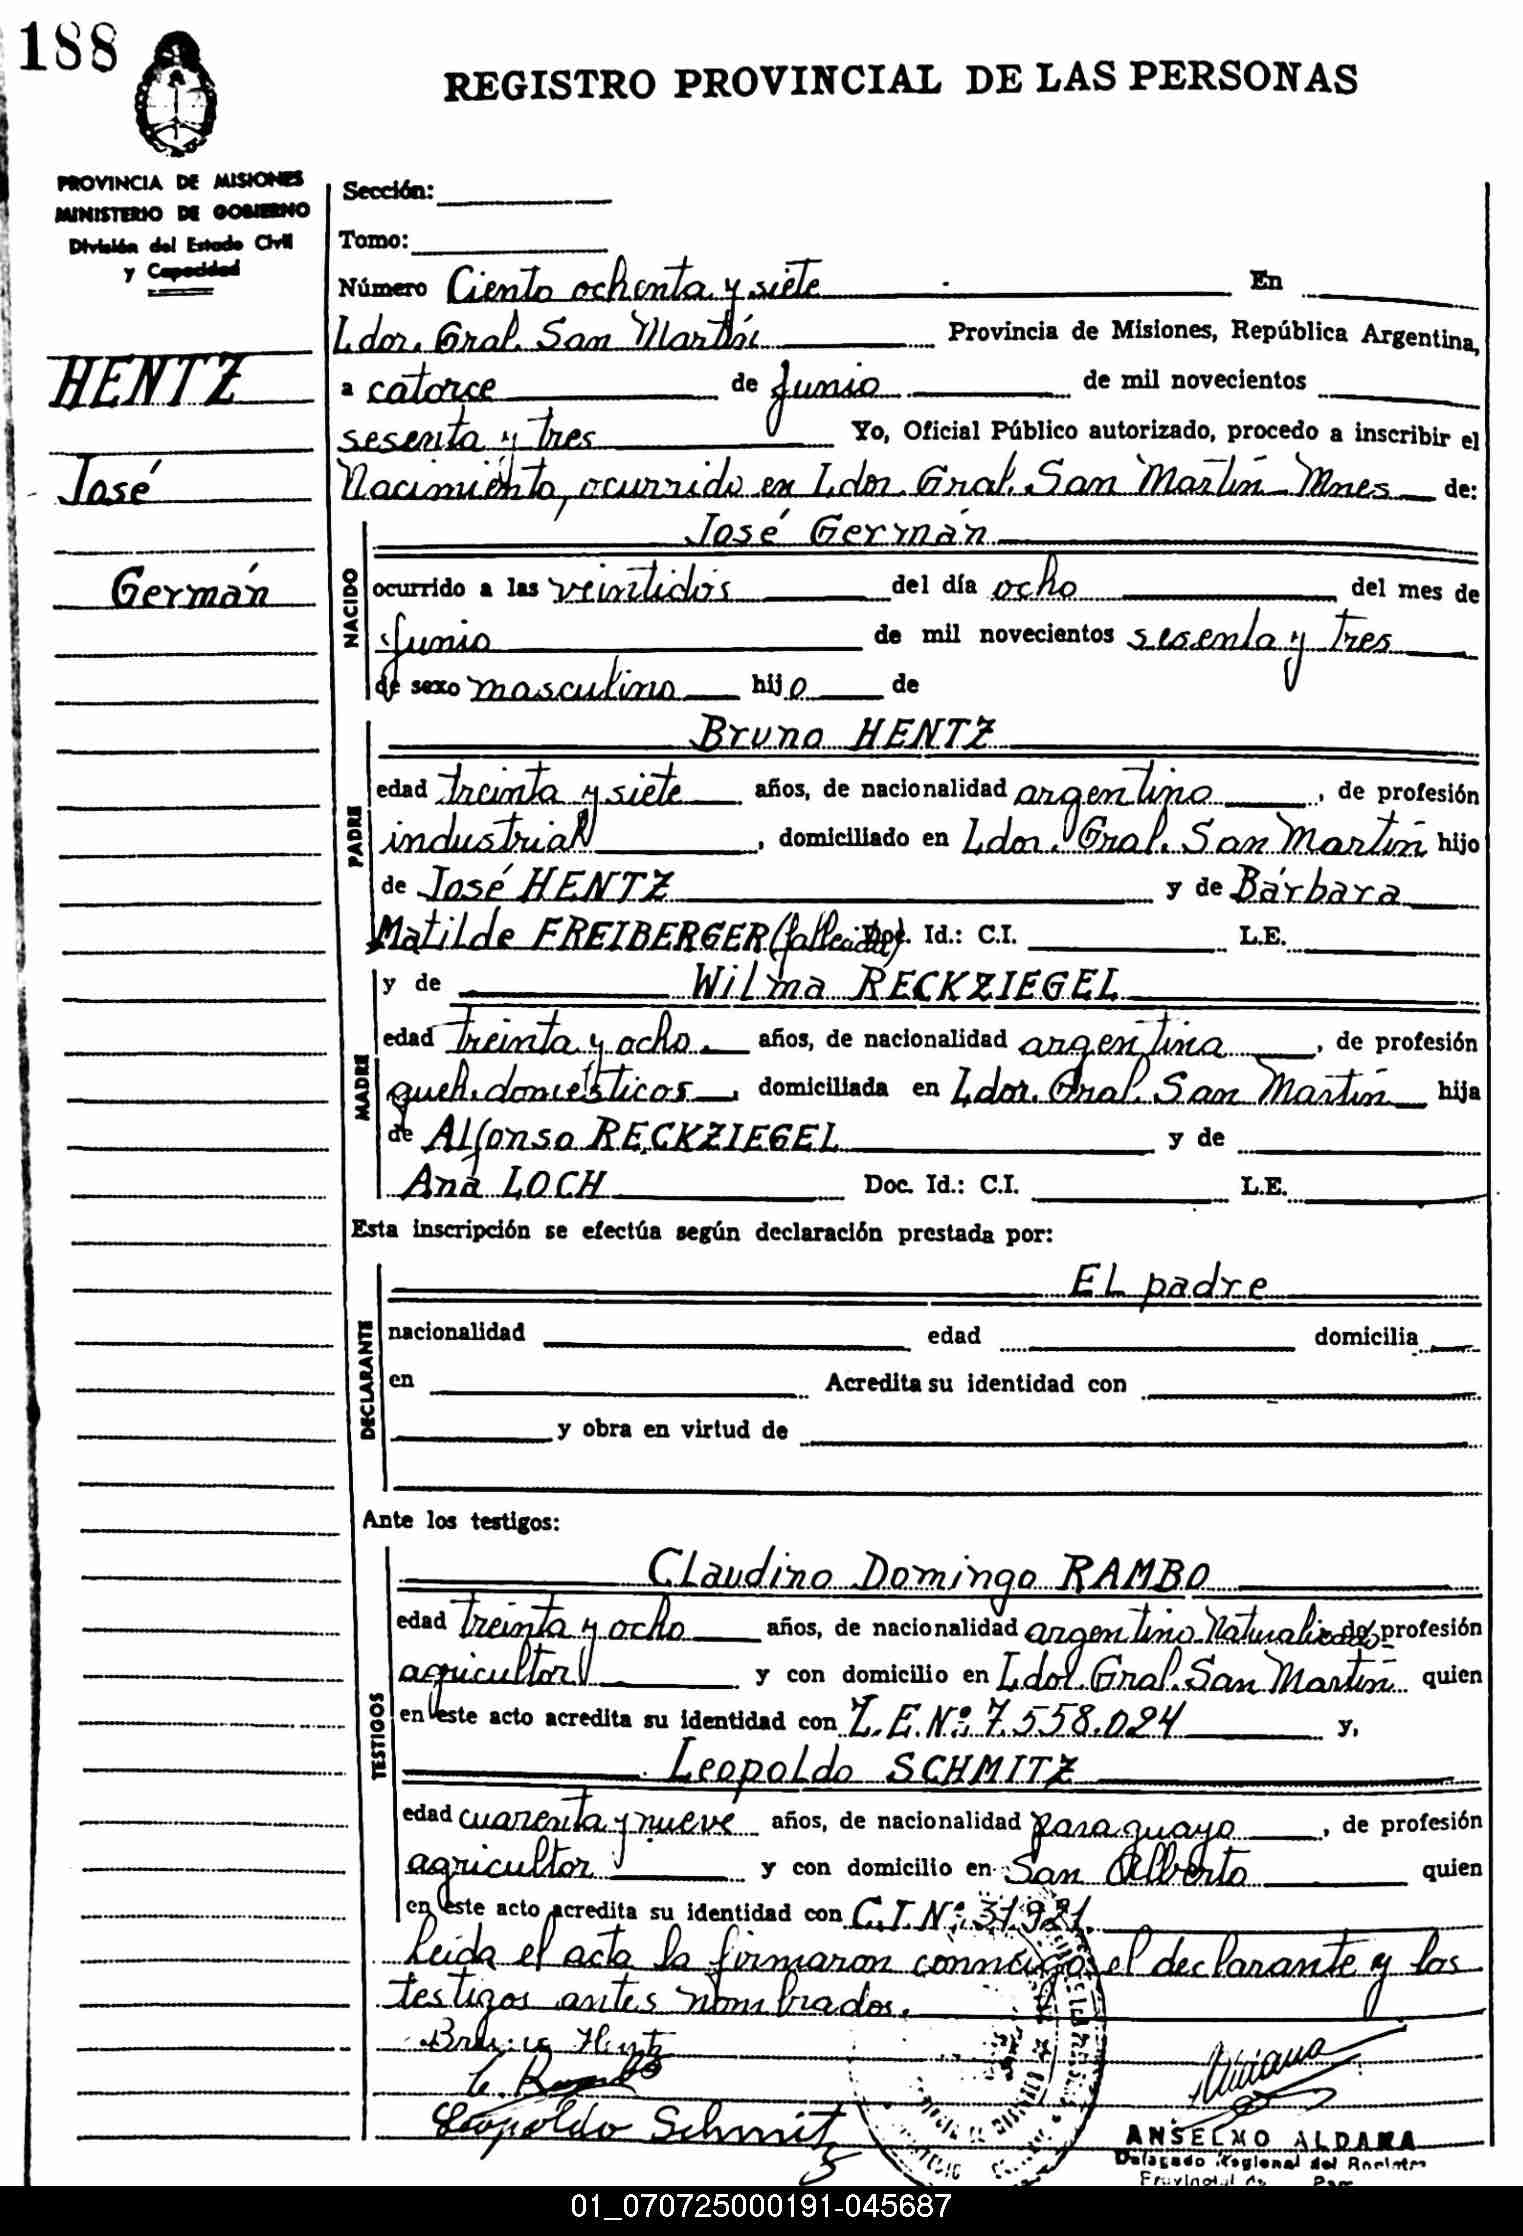 188
REGISTRO PROVINCIAL DE LAS PERSONAS
PROVINCIA DE MISIONES
MINISTERIO DE GOBIERNO
División del Estado Civil
y Capacidad
HENTZ
José
Germán
Sección:
Tomo:
Número Ciento ochenta y siete En
Ldor. Gral. San Martín Provincia de Misiones, República Argentina,
a catorce de Junio de mil novecientos
sesenta y tres Yo, Oficial Público autorizado, procedo a inscribir el
Nacimiento, ocurrido en Ldor. Gral. San Martín Mnes de:
NACIDO
José Germán
ocurrido a las veintidós del día ocho del mes de
Junio de mil novecientos sesenta y tres
de sexo masculino hijo de
PADRE
Bruno HENTZ
edad treinta y siete años, de nacionalidad argentino, de profesión
industrial, domiciliado en Ldor. Gral. San Martín hijo
de José HENTZ y de Bárbara
Matilde FREIBERGER (fallecida) Doc. Id.: C.I. L.E.
MADRE
y de Wilma RECKZIEGEL
edad treinta y ocho años, de nacionalidad argentina, de profesión
queh. domésticos, domiciliada en Ldor. Gral. San Martín hija
de Alfonso RECKZIEGEL y de
Ana LOCH Doc. Id.: C.I. L.E.
Esta inscripción se efectúa según declaración prestada por:
DECLARANTE
El padre
nacionalidad edad domicilia
en Acredita su identidad con
y obra en virtud de
Ante los testigos:
TESTIGOS
Claudino Domingo RAMBO
edad treinta y ocho años, de nacionalidad argentino Naturalizado de profesión
agricultor y con domicilio en Ldol. Gral. San Martín quien
en este acto acredita su identidad con L.E.Nº: 7.558.024 y,
Leopoldo SCHMITZ
edad cuarenta y nueve años, de nacionalidad paraguayo, de profesión
agricultor y con domicilio en San Alberto quien
en este acto acredita su identidad con C.I Nº: 31921
Leída el acta la firmaron conmigo, el declarante y los
testigos antes nombrados.
Bruno Hentz
C. Rambo
Leopoldo Schmitz
ANSELMO ALDANA
Delegado Regional del Registro
01_070725000191-045687